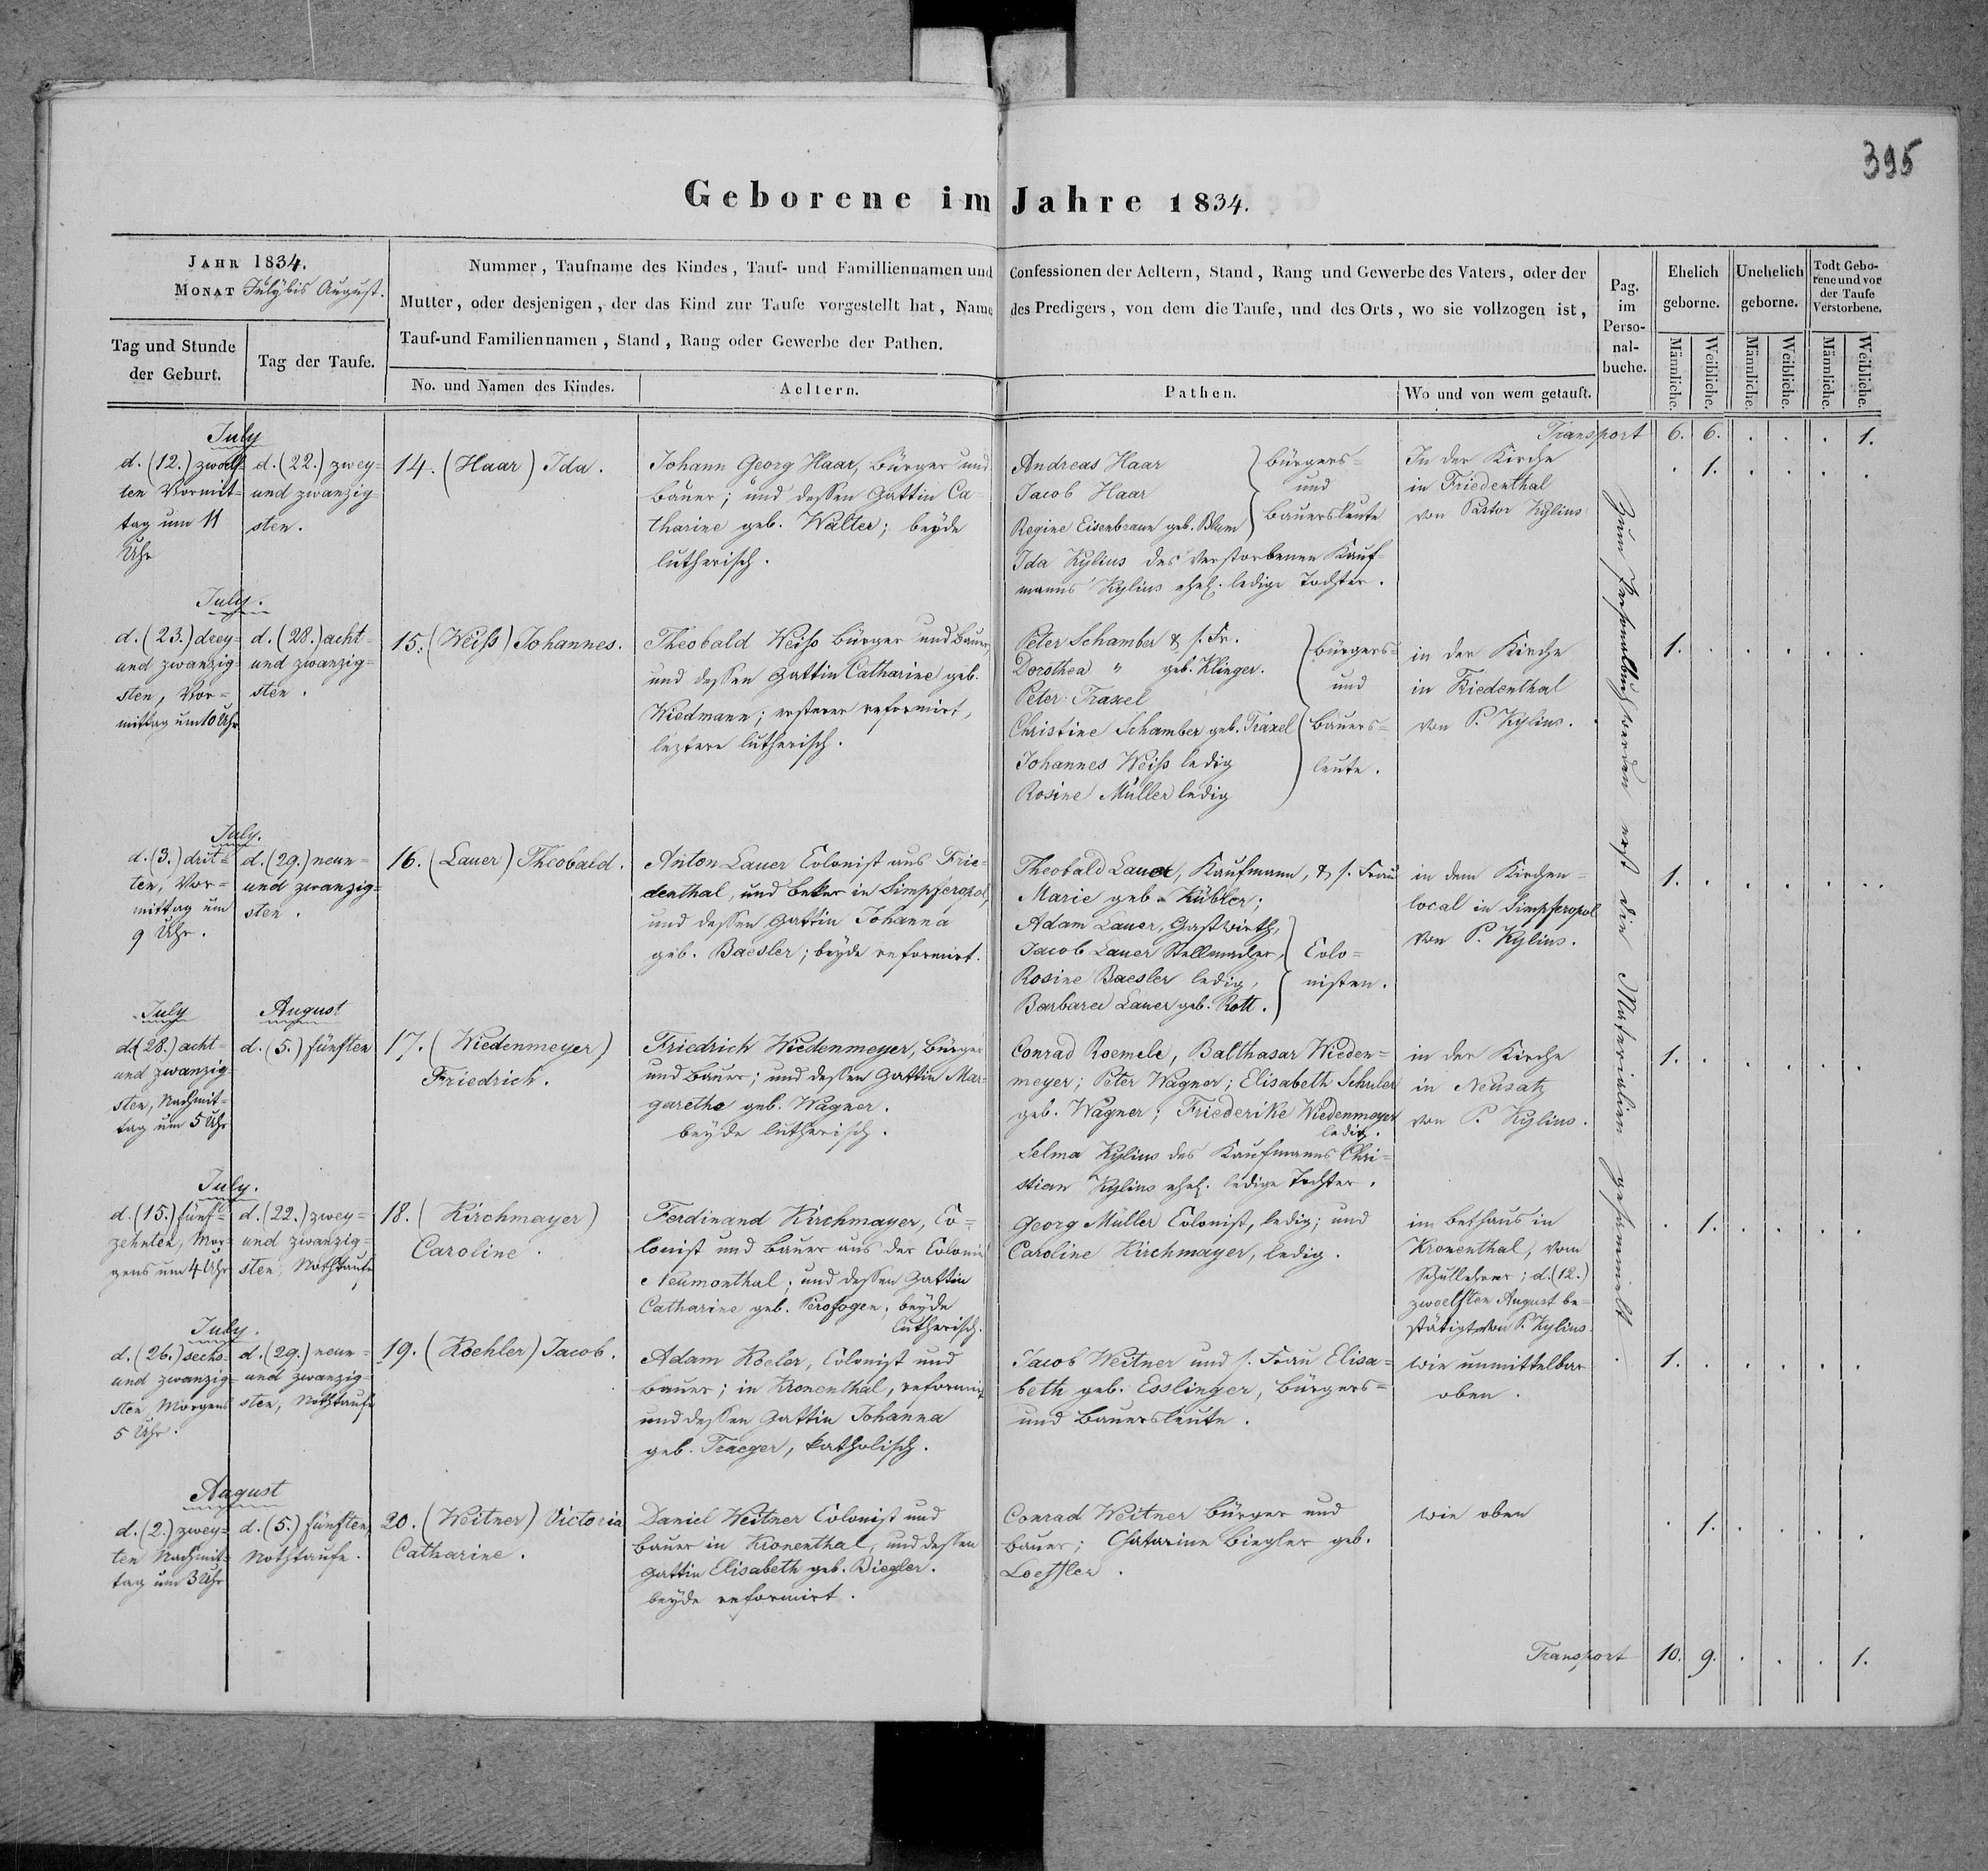 395
Geborene im Jahre 1834.
JAHR 1834.
MONAT July bis August.
Nummer, Taufname des Kindes, Tauf- und Familliennamen und Confessionen der Aeltern, Stand, Rang und Gewerbe des Vaters, oder der
Mutter, oder desjenigen, der das Kind zur Taufe vorgestellt hat, Name des Predigers, von dem die Taufe, und des Orts, wo sie vollzogen ist,
Tauf-und Familiennamen, Stand, Rang oder Gewerbe der Pathen.
Tag und Stunde
der Geburt.
Tag der Taufe.
No. und Namen des Kindes.
Aeltern.
Pathen.
Wo und von wem getauft.
Pag.
im
Perso-
nal-
buche.
Ehelich
geborne.
Unehelich
geborne.
Todt Gebo-
rene und vor
der Taufe
Verstorbene.
Männliche.
Weibliche.
Männliche.
Weibliche.
Männliche.
Weibliche.
Transport 6. 6. . . . 1.
July
d. (12.) zwoelf-
ten Vormit-
tag um 11
Uhr
d. (22.) zwey-
und zwanzig-
sten.
14. (Haar) Ida.
Johann Georg Haar, Bürger und
Bauer; und dessen Gattin Ca-
tharine geb. Walter; beyde
lutherisch.
Andreas Haar
Jacob Haar
Regine Eisenbraun geb. Blum
Bürgers-
und
Bauersleute
Ida Kylius des verstorbenen Kauf-
manns Kylius ehel. ledige Tochter.
In der Kirche
in Friedenthal
von Pastor Kylius
. 1. . . . .
July.
d. (23.) drey-
und zwanzig-
sten, Vor-
mittag um 10 Uhr
d. (28.) acht-
und zwanzig-
sten.
15. (Weiss) Johannes.
Theobald Weiss Bürger und Bauer,
und dessen Gattin Catharine geb.
Wiedmann; ersterer reformirt,
leztere lutherisch.
Peter Schamber & s. Fr.
Dorothea " geb. Klinger.
Peter Traxel
Christine Schamber geb. Traxel
Johannes Weiss ledig
Rosine Müller ledig
Bürgers-
und
Bauers-
leute.
in der Kirche
in Friedenthal
von P. Kylius.
1. . . . . .
July.
d. (3.) drit-
ten, Vor-
mittag um
9 Uhr.
d. (29.) neun-
und zwanzig-
sten.
16. (Lauer) Theobald.
Anton Lauer Colonist aus Frie-
denthal, und Beker in Simpferopol,
und dessen Gattin Johanna
geb. Baesler; beyde reformirt.
Theobald Lauer, Kaufmann, & s. Frau
Marie geb. Kübler;
Adam Lauer, Gastwirth,
Jacob Lauer Stellmacher,
Rosine Baesler ledig,
Barbara Lauer geb. Rott.
Colo-
nisten.
in dem Kirchen-
local in Simpferopol
von P. Kylius.
1. . . . . .
July
August
d. (28.) acht-
und zwanzig-
sten, Nachmit-
tag um 5 Uhr
d. (5.) fünften
17. (Wiedenmeyer)
Friedrich.
Friedrich Wiedenmeyer, Bürger
und Bauer; und dessen Gattin Mar-
garethe geb. Wagner.
beyde lutherisch.
Conrad Roemele, Balthasar Wieden-
meyer; Peter Wagner; Elisabeth Schuler
geb. Wagner; Friederike Wiedenmeyer
ledig.
Selma Kylius des Kaufmanns Chri-
stian Kylius ehel. ledige Tochter.
in der Kirche
in Neusatz
von P. Kylius.
1. . . . . .
July.
d. (15.) fünf-
zehnten, Mor-
gens um 4 Uhr
d. (22.) zwey-
und zwanzig-
sten, Nothtaufe
18. (Kirchmayer)
Caroline.
Ferdinand Kirchmayer, Co-
lonist und Bauer aus der Colonie
Neumonthal; und dessen Gattin
Catharine geb. beyde
lutherisch.
Georg Müller Colonist, ledig; und
Caroline Kirchmayer, ledig.
im Bethaus in
Kronenthal, vom
Schullehrer; d. (12.)
zwoelften August be-
stätigt von P. Kylius.
. 1. . . . .
July.
d. (26.) sechs-
und zwanzig-
sten, Morgens
5 Uhr.
d. (29.) neun-
und zwanzig-
sten, Nothtaufe
19. (Koehler) Jacob.
Adam Koeler, Colonist und
Bauer; in Kronenthal, reformirt
und dessen Gattin Johanna
geb. Traeger, katholisch.
Jacob Weitner und s. Frau Elisa-
beth geb. Esslinger, Bürgers-
und Bauersleute.
wie unmittelbar
oben.
1. . . . . .
August
d. (2.) zwey-
ten Nachmit-
tag um 3 Uhr
d. (5.) fünften,
Nothtaufe.
20. (Weitner) Victoria
Catharine.
Daniel Weitner Colonist und
Bauer in Kronenthal, und dessen
Gattin Elisabeth geb. Biegler.
beyde reformirt.
Conrad Weitner Bürger und
Bauer; Chatarine Biegler geb.
Loeffler.
wie oben
. 1. . . . .
Zum Personalbuch werden erst die Materialien gesammelt
Transport 10. 9. . . . 1.